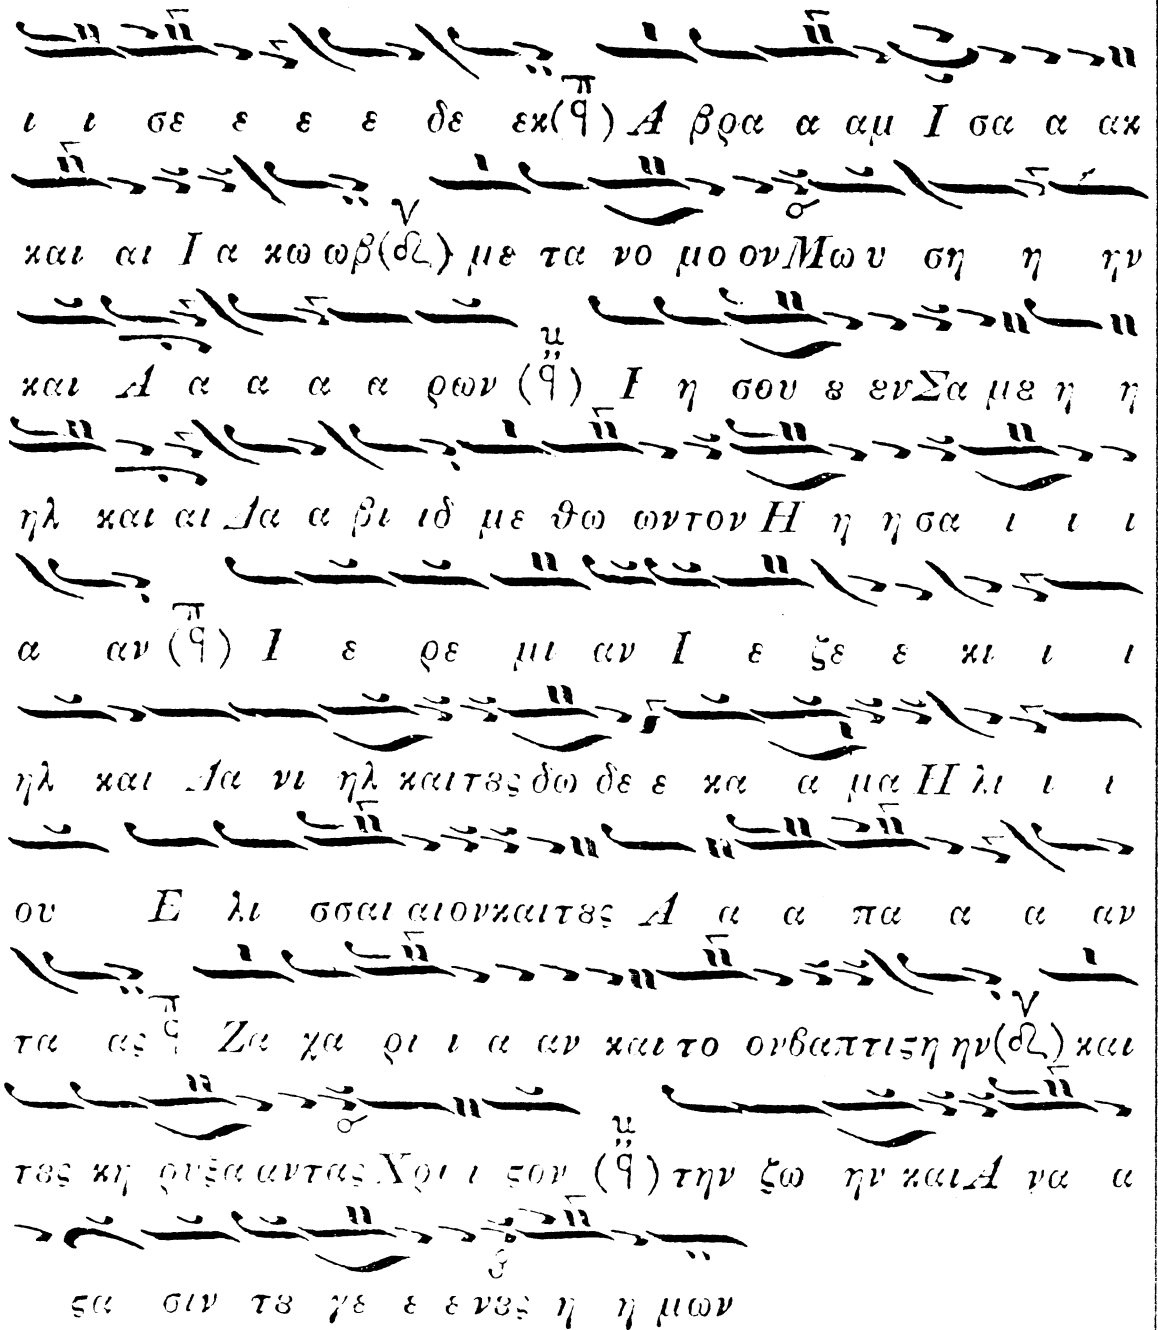 ι ι σε ε ε ε δε εκ (π ϥ) Α βρα α αμ Ι σα α ακ
και αι Ι α κω ωβ (ν δι) με τα νο μο ον Μω υ ση η ην
και Α α α α α ρων (κ ϥ) Ι η σου ȣ εν Σα μȣ η η
ηλ και αι Δα α βι ιδ με θω ων τον Η η η σα ι ι ι
α αν (π ϥ) Ι ε ρε μι αν Ι ε ζε ε κι ι ι
ηλ και Δα νι ηλ και τȣς δω δε ε κα α μα Η λι ι ι
ου Ε λι σσαι αι ον και τȣς Α α α πα α α αν
τα ας π ϥ Ζα χα ρι ι α αν και το ον βα πτι ϛη ην (ν δι) και
τȣς κη ρυξα αν τας Χρι ι ϛον (κ ϥ) την ζω ην και Α να α
ϛα σιν τȣ γε ε ε νȣς η η μων